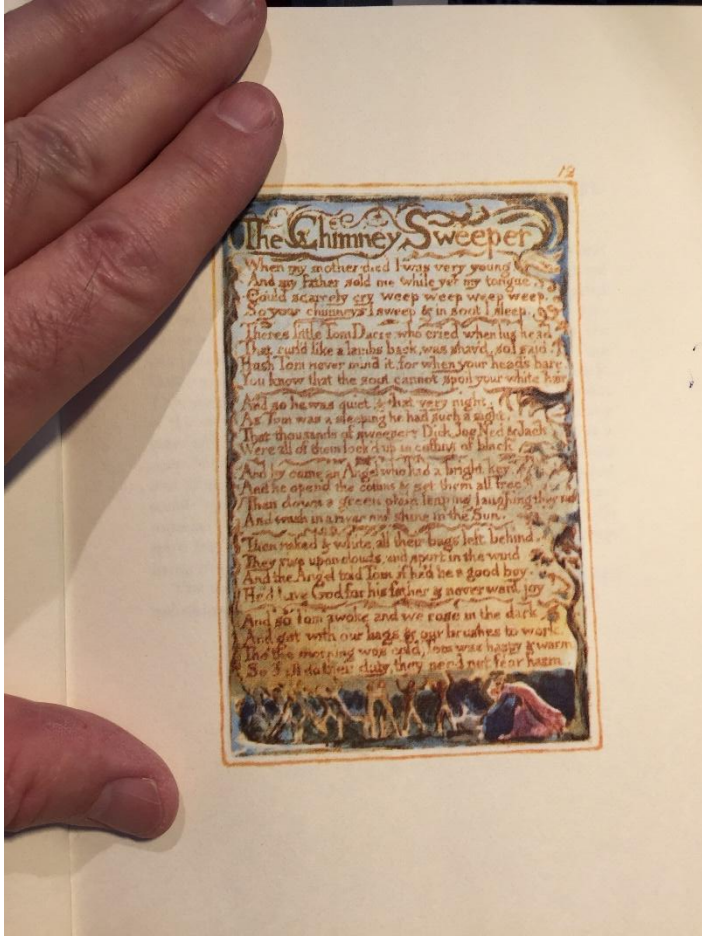 12
The Chimney Sweeper
When my mother died I was very young
And my father sold me while yet my tongue
Could scarcely cry weep weep weep weep.
So your chimneys I sweep & in soot I sleep.
Theres little Tom Dacre who cried when his head
That curl'd like a lambs back, was shav'd, so I said.
Hush Tom never mind it, for when your head's bare
You know that the soot cannot spoil your white hair
And so he was quiet, & that very night.
As Tom was a sleeping he had such a sight,
That thousands of sweepers Dick, Joe, Ned & Jack
Were all of them lock'd up in coffins of black
And by came an Angel who had a bright key
And he open'd the coffins & set them all free.
Then down a green plain leaping laughing they run
And wash in a river and shine in the Sun.
Then naked & white, all their bags left behind,
They rise upon clouds, and sport in the wind
And the Angel told Tom if he'd be a good boy.
He'd have God for his father & never want joy
And so Tom awoke and we rose in the dark
And got with our bags & our brushes to work.
Tho' the morning was cold, Tom was happy & warm
So if all do their duty, they need not fear harm